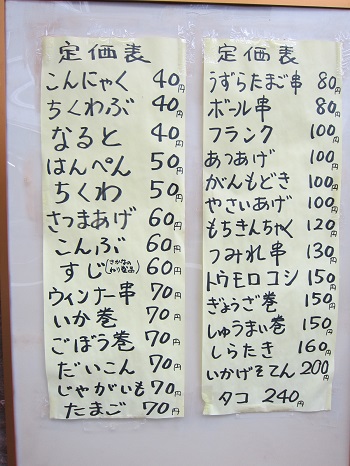 定価表
こんにゃく 40円
ちくわぶ 40円
なると 40円
はんぺん 50円
ちくわ 50円
さつまあげ 60円
こんぶ 60円
すじ(さかなのねり製品) 60円
ウィンナー串 70円
いか巻 70円
ごぼう巻 70円
だいこん 70円
じゃがいも 70円
たまご 70円
定価表
うずらたまご串 80円
ボール串 80円
フランク 100円
あつあげ 100円
がんもどき 100円
やさいあげ 100円
もちきんちゃく 120円
つみれ串 130円
トウモロコシ 150円
ぎょうざ巻 150円
しゅうまい巻 150円
しらたき 160円
いかげそてん 200円
タコ 240円